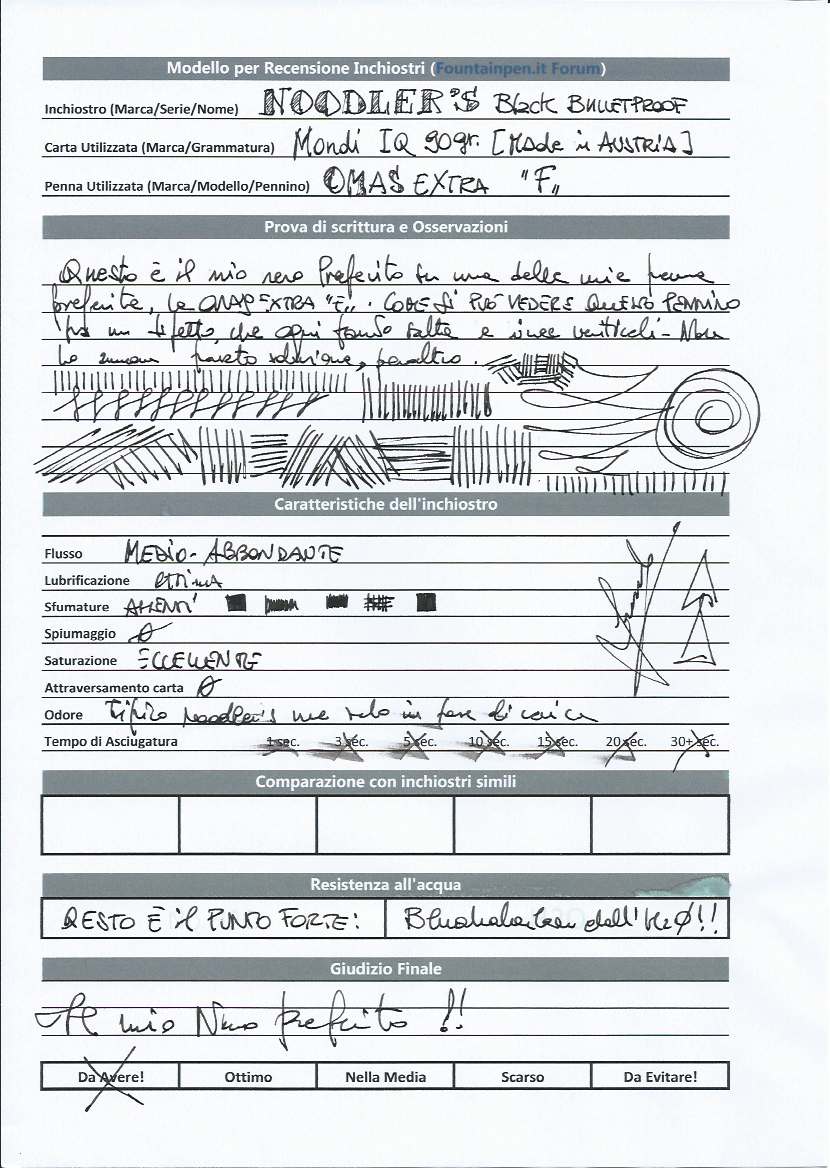 Modello per Recensione Inchiostri (Fountainpen.it Forum)
Inchiostro (Marca/Serie/Nome) NOODLER'S Black BULLETPROOF
Carta Utilizzata (Marca/Grammatura) Mondi IQ 90gr. [Made in AUSTRIA]
Penna Utilizzata (Marca/Modello/Pennino) OMAS EXTRA "F"
Prova di scrittura e Osservazioni
Questo è il mio nero preferito su una delle mie penne
preferite, la OMAS EXTRA "F". COME SI PUÒ VEDERE QUESTO PENNINO
ha un difetto, che ogni tanto salta e linee verticali - Non
ho soluzione, peraltro.
Caratteristiche dell'inchiostro
Flusso MEDIO-ABBONDANTE
Lubrificazione OTTIMA
Sfumature
Spiumaggio Ø
Saturazione ECCELLENTE
Attraversamento carta Ø
Odore Tipico Noodler's ma solo in fase di carica
Tempo di Asciugatura 1 sec. 3 sec. 5 sec. 10 sec. 15 sec. 20 sec. 30+ sec.
Comparazione con inchiostri simili
Resistenza all'acqua
QESTO È il PUNTO FORTE! dall'H2Ø!!
Giudizio Finale
Il mio Nero preferito !!
Da Avere! Ottimo Nella Media Scarso Da Evitare!